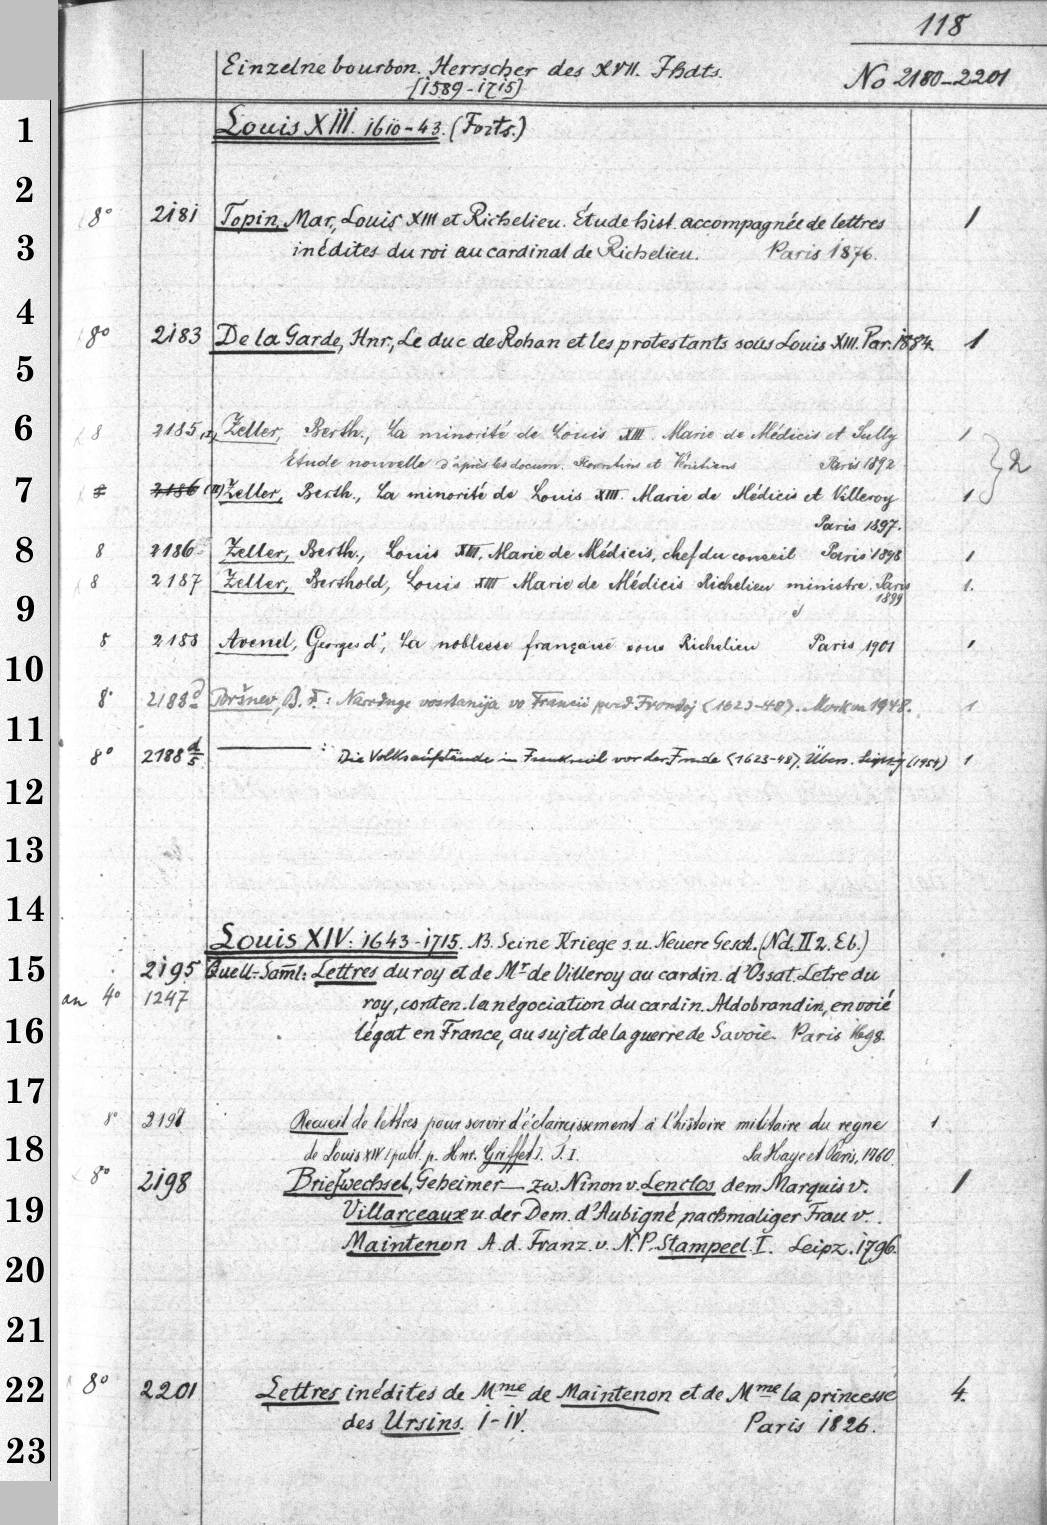 118
Einzelne bourbon. Herrscher des XVII. Jhdts.
[1589-1715]
No 2180-2201
1
Louis XIII. 1610-43. (Forts.)
2
8° 2181 Topin, Mar., Louis XIII et Richelieu. Étude hist. accompagnée de lettres 1
3
inédites du roi au cardinal de Richelieu. Paris 1876.
4
8° 2183 De la Garde, Hnr., Le duc de Rohan et les protestants sous Louis XIII. Par. 1884. 1
5
6
8 2185 (I) Zeller, Berth., La minorité de Louis XIII. Marie de Médicis et Sully 1
Etude nouvelle d'après les docum. florentins et Vénitiens Paris 1892 2
7
8 2186 (II) Zeller, Berth., La minorité de Louis XIII. Marie de Médicis et Villeroy 1
Paris 1897.
8
8 2186 Zeller, Berth., Louis XIII, Marie de Médicis, chef du conseil Paris 1898 1
8 2187 Zeller, Berthold, Louis XIII Marie de Médicis Richelieu ministre. Paris 1.
1899
9
8 2188 Avenel, Georges d', La noblesse française sous Richelieu Paris 1901 1
10
8° 2188 Poršnev, B. F.: Narodnye vosstanija vo Francii pered Frondoj (1623-48). Moskva 1948. 1
11
8° 2188 d/5 : Die Volksaufstände in Frankreich vor der Fronde (1623-48). Übers. Leipzig (1954) 1
12
13
14
Louis XIV. 1643-1715. NB. Seine Kriege s. u. Neuere Gesch. (Nd. II 2. Eb.)
15
2195 Quell.-Saml: Lettres du roy et de Mr de Villeroy au cardin. d'Ossat. Letre du
an 4° 1247 roy, conten. la négociation du cardin. Aldobrandin, envoié
16
légat en France, au sujet de la guerre de Savoie. Paris 1698.
17
8° 2197 Recueil de lettres pour servir d'éclaircissement à l'histoire militaire du regne 1
18
de Louis XIV publ. p. Hnr. Griffet. T. I. La Haye et Paris, 1760.
8° 2198 Briefwechsel, Geheimer — zw. Ninon v. Lenclos dem Marquis v. 1
19
Villarceaux u. der Dem. d'Aubigné nachmaliger Frau v.
Maintenon A. d. Franz. v. N. P. Stampeel. I. Leipz. 1796.
20
21
22
8° 2201 Lettres inédites de Mme de Maintenon et de Mme la princesse 4.
des Ursins. I-IV. Paris 1826.
23